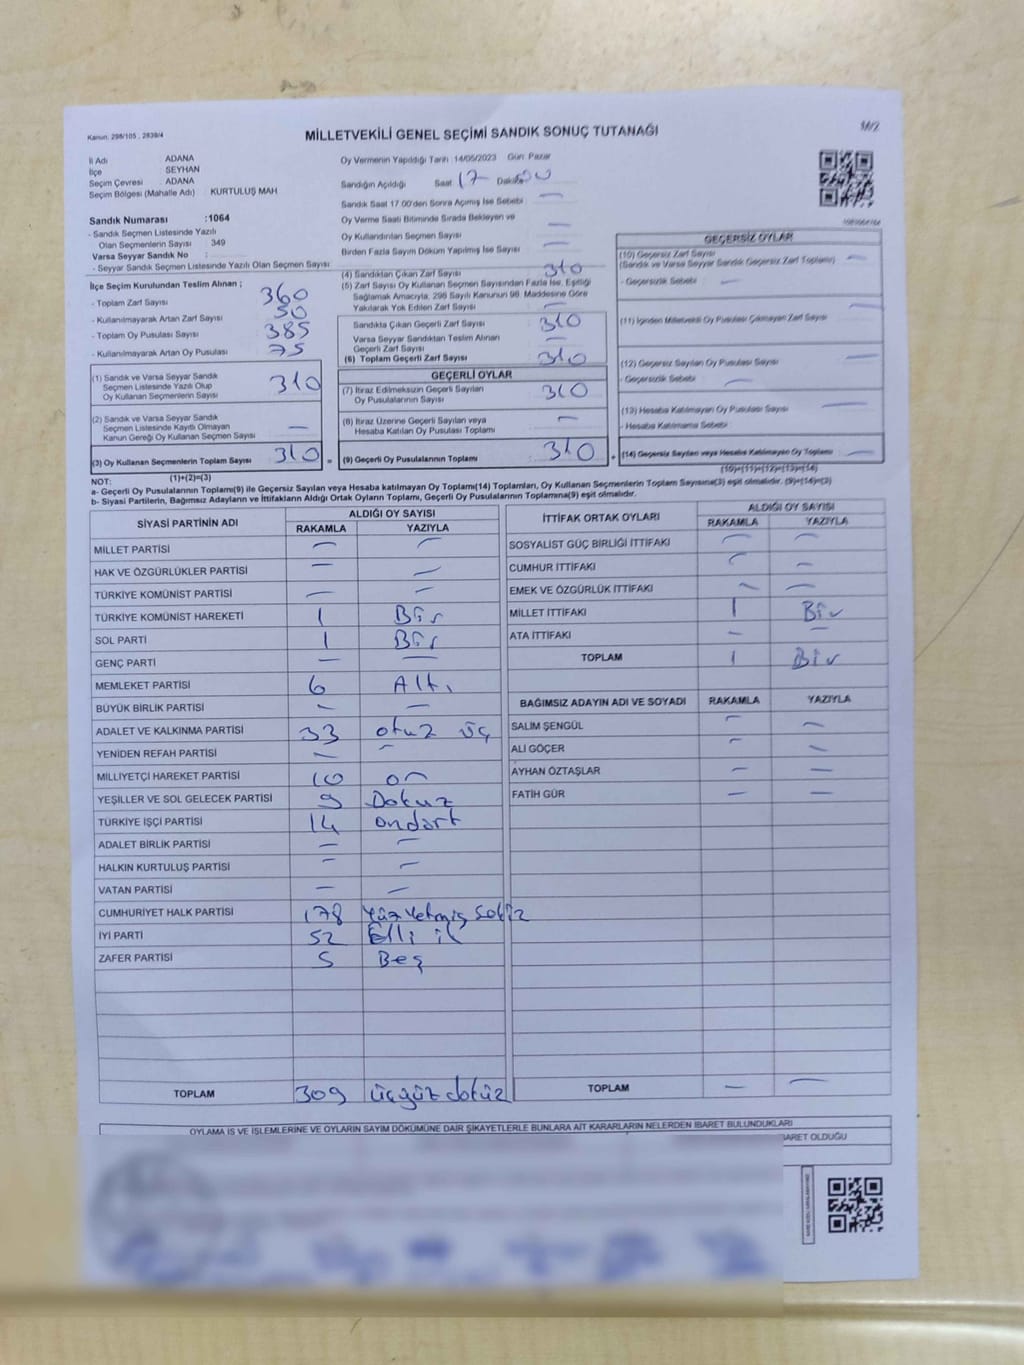 Kanun. 298/105 . 2839/4
MİLLETVEKİLİ GENEL SEÇİMİ SANDIK SONUÇ TUTANAĞI
M/2
İl Adı ADANA
İlçe SEYHAN
Seçim Çevresi ADANA
Seçim Bölgesi (Mahalle Adı) KURTULUŞ MAH
Sandık Numarası :1064
- Sandık Seçmen Listesinde Yazılı
Olan Seçmenlerin Sayısı : 349
Varsa Seyyar Sandık No :
- Seyyar Sandık Seçmen Listesinde Yazılı Olan Seçmen Sayısı
İlçe Seçim Kurulundan Teslim Alınan ;
- Toplam Zarf Sayısı 360
- Kullanılmayarak Artan Zarf Sayısı 50
- Toplam Oy Pusulası Sayısı 385
- Kullanılmayarak Artan Oy Pusulası 75
(1) Sandık ve Varsa Seyyar Sandık
Seçmen Listesinde Yazılı Olup
Oy Kullanan Seçmenlerin Sayısı 310
(2) Sandık ve Varsa Seyyar Sandık
Seçmen Listesinde Kayıtlı Olmayan
Kanun Gereği Oy Kullanan Seçmen Sayısı —
(3) Oy Kullanan Seçmenlerin Toplam Sayısı 310 =
(1)+(2)=(3)
Oy Vermenin Yapıldığı Tarih : 14/05/2023 Gün: Pazar
Sandığın Açıldığı Saat 17 Dakika 00
Sandık Saat 17.00'den Sonra Açılmış İse Sebebi —
Oy Verme Saati Bitiminde Sırada Bekleyen ve
Oy Kullandırılan Seçmen Sayısı —
Birden Fazla Sayım Döküm Yapılmış İse Sayısı —
(4) Sandıktan Çıkan Zarf Sayısı 310
(5) Zarf Sayısı Oy Kullanan Seçmen Sayısından Fazla İse, Eşitliği
Sağlamak Amacıyla, 298 Sayılı Kanunun 98. Maddesine Göre
Yakılarak Yok Edilen Zarf Sayısı —
Sandıkta Çıkan Geçerli Zarf Sayısı 310
Varsa Seyyar Sandıktan Teslim Alınan
Geçerli Zarf Sayısı —
(6) Toplam Geçerli Zarf Sayısı 310
GEÇERLİ OYLAR
(7) İtiraz Edilmeksizin Geçerli Sayılan
Oy Pusulalarının Sayısı 310
(8) İtiraz Üzerine Geçerli Sayılan veya
Hesaba Katılan Oy Pusulası Toplamı —
(9) Geçerli Oy Pusulalarının Toplamı 310 +
GEÇERSİZ OYLAR
(10) Geçersiz Zarf Sayısı
(Sandık ve Varsa Seyyar Sandık Geçersiz Zarf Toplamı) —
- Geçersizlik Sebebi —
(11) İçinden Milletvekili Oy Pusulası Çıkmayan Zarf Sayısı —
(12) Geçersiz Sayılan Oy Pusulası Sayısı —
- Geçersizlik Sebebi —
(13) Hesaba Katılmayan Oy Pusulası Sayısı —
- Hesaba Katılmama Sebebi —
(14) Geçersiz Sayılan veya Hesaba Katılmayan Oy Toplamı —
(10)+(11)+(12)+(13)=(14)
NOT:
a- Geçerli Oy Pusulasının Toplamı(9) ile Geçersiz Sayılan veya Hesaba katılmayan Oy Toplamı(14) Toplamları, Oy Kullanan Seçmenlerin Toplam Sayısına(3) eşit olmalıdır. (9)+(14)=(3)
b- Siyasi Partilerin, Bağımsız Adayların ve İttifakların Aldığı Ortak Oyların Toplamı, Geçerli Oy Pusulalarının Toplamına(9) eşit olmalıdır.
SİYASİ PARTİNİN ADI ALDIĞI OY SAYISI
RAKAMLA YAZIYLA
MİLLET PARTİSİ — —
HAK VE ÖZGÜRLÜKLER PARTİSİ — —
TÜRKİYE KOMÜNİST PARTİSİ — —
TÜRKİYE KOMÜNİST HAREKETİ 1 Bir
SOL PARTİ 1 Bir
GENÇ PARTİ — —
MEMLEKET PARTİSİ 6 Altı
BÜYÜK BİRLİK PARTİSİ — —
ADALET VE KALKINMA PARTİSİ 33 otuz üç
YENİDEN REFAH PARTİSİ — —
MİLLİYETÇİ HAREKET PARTİSİ 10 on
YEŞİLLER VE SOL GELECEK PARTİSİ 9 Dokuz
TÜRKİYE İŞÇİ PARTİSİ 14 ondört
ADALET BİRLİK PARTİSİ — —
HALKIN KURTULUŞ PARTİSİ — —
VATAN PARTİSİ — —
CUMHURİYET HALK PARTİSİ 178 Yüz Yetmiş Sekiz
İYİ PARTİ 52 Elli iki
ZAFER PARTİSİ 5 Beş
TOPLAM 309 üçyüz dokuz
İTTİFAK ORTAK OYLARI ALDIĞI OY SAYISI
RAKAMLA YAZIYLA
SOSYALİST GÜÇ BİRLİĞİ İTTİFAKI — —
CUMHUR İTTİFAKI — —
EMEK VE ÖZGÜRLÜK İTTİFAKI — —
MİLLET İTTİFAKI 1 Bir
ATA İTTİFAKI — —
TOPLAM 1 Bir
BAĞIMSIZ ADAYIN ADI VE SOYADI RAKAMLA YAZIYLA
SALİM ŞENGÜL — —
ALİ GÖÇER — —
AYHAN ÖZTAŞLAR — —
FATİH GÜR — —
TOPLAM — —
OYLAMA İŞ VE İŞLEMLERİNE VE OYLARIN SAYIM DÖKÜMÜNE DAİR ŞİKAYETLERLE BUNLARA AİT KARARLARIN NELERDEN İBARET BULUNDUKLARI
BARET OLDUĞU